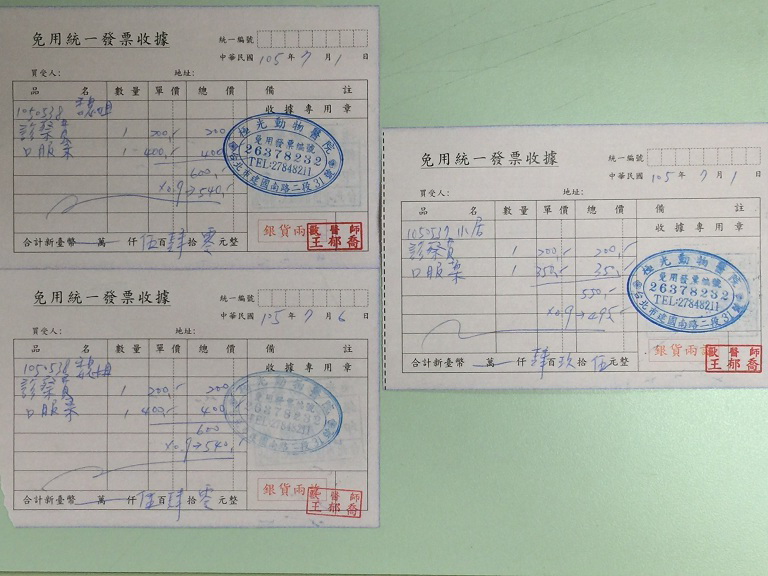 免用統一發票收據
統一編號
中華民國 105 年 7 月 1 日
買受人： 地址：
品 名 數量 單價 總價 備 註
1050538
收據專用章
診察費 1 200 200
口服藥 1 400 400
600
x0.9→540
極光動物醫院
免用發票編號
26378232
TEL:27848211
台北市建國南路二段31號
銀貨兩訖
獸醫師
王郁喬
合計新臺幣 萬 仟 伍 百 肆 拾 零 元整
免用統一發票收據
統一編號
中華民國 105 年 7 月 6 日
買受人： 地址：
品 名 數量 單價 總價 備 註
1050538
收據專用章
診察費 1 200 200
口服藥 1 400 400
600
x0.9→540
極光動物醫院
免用發票編號
26378232
TEL:27848211
台北市建國南路二段31號
銀貨兩訖
獸醫師
王郁喬
合計新臺幣 萬 仟 伍 百 肆 拾 零 元整
免用統一發票收據
統一編號
中華民國 105 年 7 月 1 日
買受人： 地址：
品 名 數量 單價 總價 備 註
1050537 小居
收據專用章
診察費 1 200 200
口服藥 1 350 350
550
x0.9→495
極光動物醫院
免用發票編號
26378232
TEL:27848211
台北市建國南路二段31號
銀貨兩訖
獸醫師
王郁喬
合計新臺幣 萬 仟 肆 百 玖 拾 伍 元整